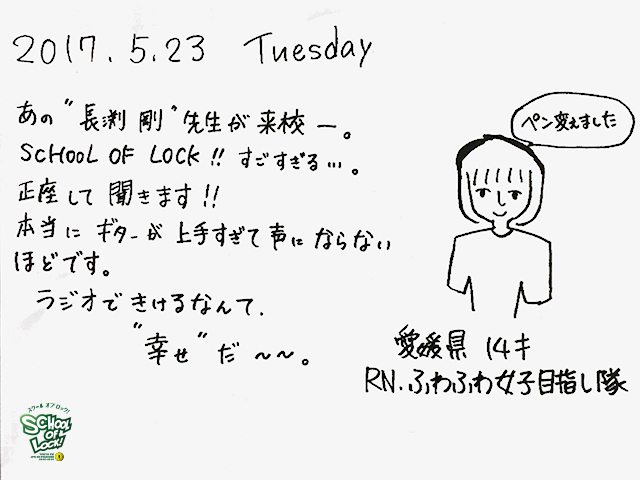 2017. 5. 23 Tuesday
あの"長渕 剛"先生が来校ー。
SCHOOL OF LOCK!! すごすぎる…。
正座して聞きます!!
本当に ギターが上手すぎて声に ならない
ほどです。
ラジオで きけるなんて、
"幸せ"だ〜〜。
ペン変えました
愛媛県 14才
RN. ふわふわ女子目指し隊
スクール オブ ロック!
SCHOOL
OF
LOCK!